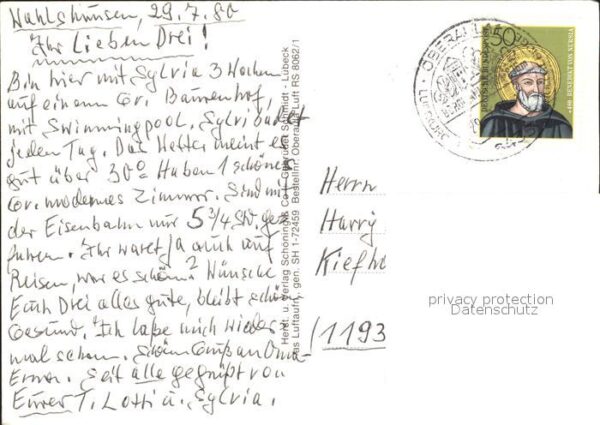 Wahlshausen, 29.7.80
Ihr Lieben Drei!
Bin hier mit Sylvia 3 Wochen
auf einem Gr. Bauernhof,
mit Swimmingpool. Sylvi badet
jeden Tag. Das Wetter meint es
gut über 30° Haben 1 schönes
Gr. modernes Zimmer. Sind mit
der Eisenbahn nur 5 3/4 Std. ge-
fahren. Ihr waret ja auch auf
Reisen, war es schön? Wünsche
Euch Drei alles gute, bleibt schön
Gesund. Ich laße mich wieder
mal sehen. Schöne Grüß an Oma
Erna. Seit alle gegrüßt von
Eurer T. Lotti u. Sylvia.
Herst. u. Verlag Schöning & Co + Gebrüder Schmidt - Lübeck
Luftaufn. gen. SH 1-72459 Bestellnr. Oberaula Luft RS 8062/1
OBERAULA
50
DEUTSCHE BUNDESPOST
480 BENEDIKT VON NURSIA
Herrn
Harry
Kiefh
(1193
privacy protection
Datenschutz